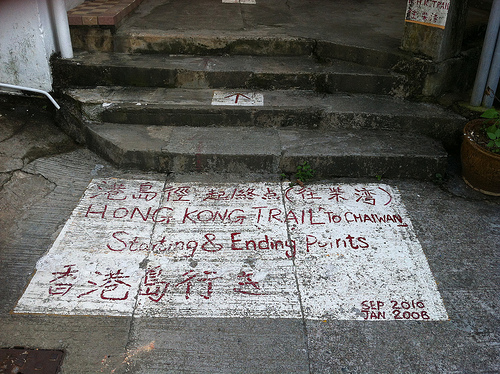 H.K.TRAIL
港島徑 起終点(往柴灣)
HONG KONG TRAIL TO CHAIWAN
Starting & Ending Points
香港島行
SEP 2010
JAN 2008